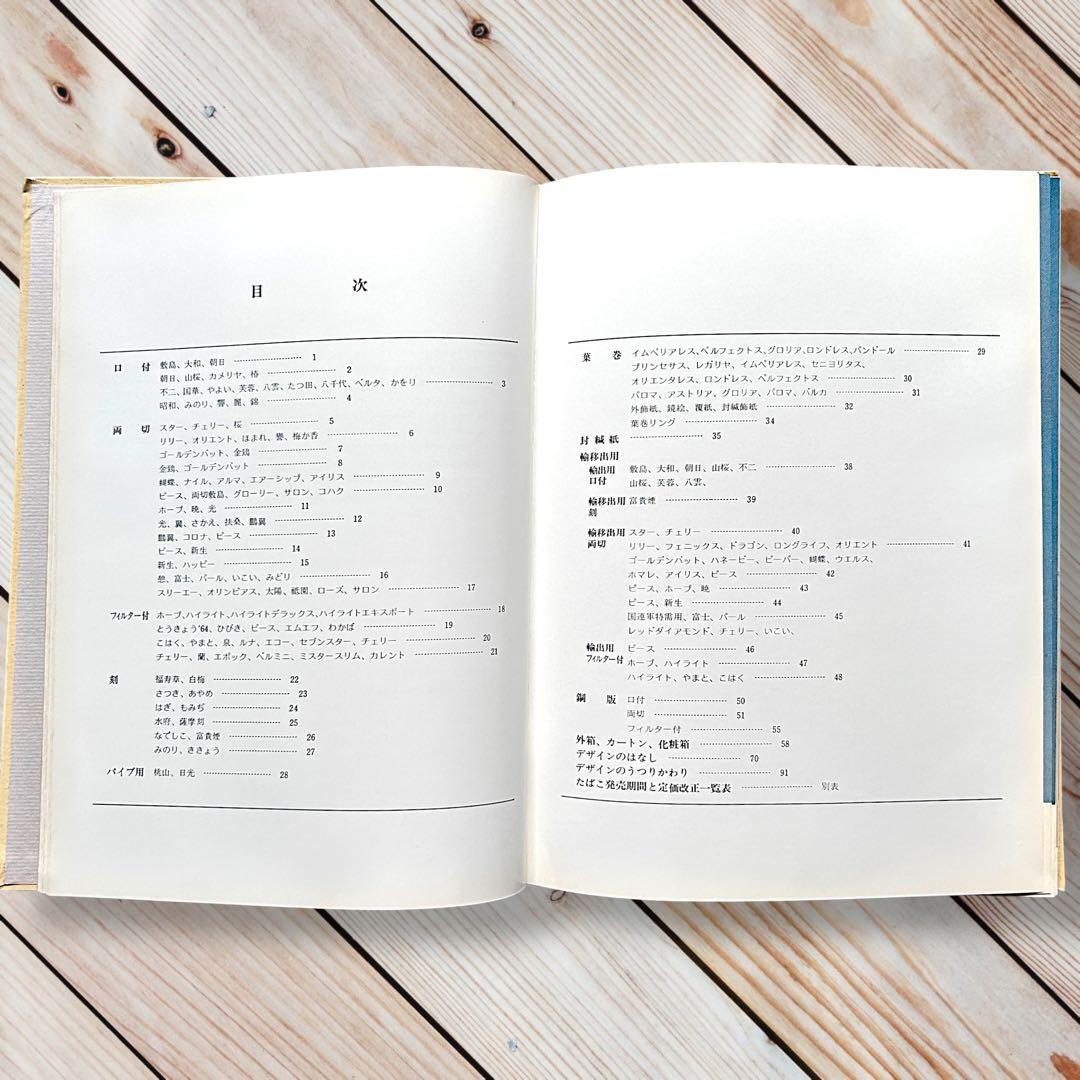 目 次
口 付 敷島、大和、朝日 1
朝日、山桜、カメリヤ、椿 2
不二、国華、やよい、芙蓉、八雲、たつ田、八千代、ベルタ、かをり 3
昭和、みのり、響、麗、錦 4
両 切 スター、チェリー、桜 5
リリー、オリエント、ほまれ、譽、梅か香 6
ゴールデンバット、金鵄 7
金鵄、ゴールデンバット 8
蝴蝶、ナイル、アルマ、エアーシップ、アイリス 9
ピース、両切敷島、グローリー、サロン、コハク 10
ホープ、暁、光 11
光、翼、さかえ、扶桑、鵬翼 12
鵬翼、コロナ、ピース 13
ピース、新生 14
新生、ハッピー 15
憩、富士、パール、いこい、みどり 16
スリーエー、オリンピアス、太陽、祇園、ローズ、サロン 17
フィルター付 ホープ、ハイライト、ハイライトデラックス、ハイライトエキスポート 18
とうきょう'64、ひびき、ピース、エムエフ、わかば 19
こはく、やまと、泉、ルナ、エコー、セブンスター、チェリー 20
チェリー、蘭、エポック、ベルミニ、ミスタースリム、カレント 21
刻 福寿草、白梅 22
さつき、あやめ 23
はぎ、もみぢ 24
水府、薩摩刻 25
なでしこ、富貴煙 26
みのり、ききょう 27
パイプ用 桃山、日光 28
葉 巻 イムペリアレス、ペルフェクトス、グロリア、ロンドレス、パンドール 29
プリンセサス、レガリヤ、イムペリアレス、セニヨリタス、
オリエンタレス、ロンドレス、ペルフェクトス 30
パロマ、アストリア、グロリア、パロマ、バルカ 31
外飾紙、鏡絵、覆紙、封緘飾紙 32
葉巻リング 34
封緘紙 35
輸移出用
輸出用 敷島、大和、朝日、山桜、不二 38
口付 山桜、芙蓉、八雲、
輸移出用 富貴煙 39
刻
輸移出用 スター、チェリー 40
両切 リリー、フェニックス、ドラゴン、ロングライフ、オリエント 41
ゴールデンバット、ハネービー、ビーバー、蝴蝶、ウエルス、
ホマレ、アイリス、ピース 42
ピース、ホープ、暁 43
ピース、新生 44
国連軍特需用、富士、パール 45
レッドダイアモンド、チェリー、いこい、
輸出用 ピース 46
フィルター付 ホープ、ハイライト 47
ハイライト、やまと、こはく 48
銅 版 口付 50
両切 51
フィルター付 55
外箱、カートン、化粧箱 58
デザインのはなし 70
デザインのうつりかわり 91
たばこ発売期間と定価改正一覧表 別表